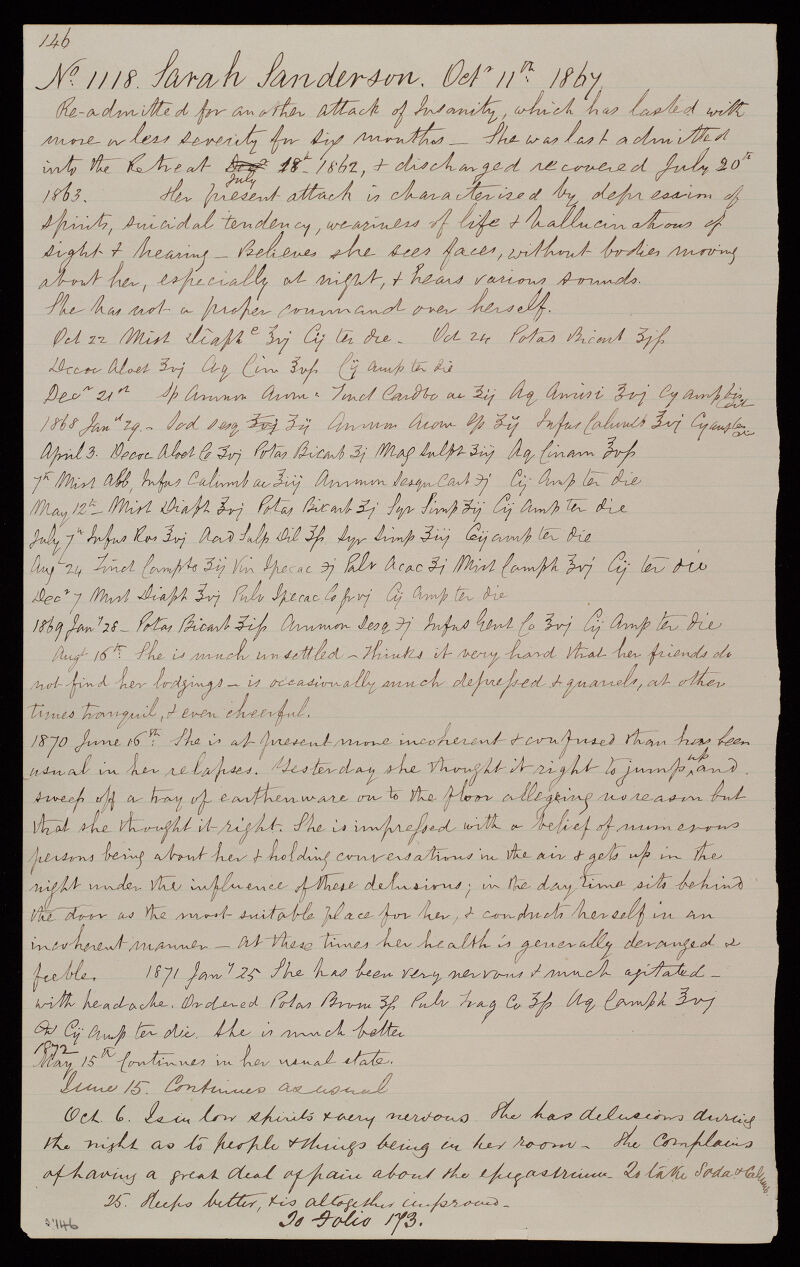 146
No. 1118. Sarah Sanderson. Octr 11th 1867
Re-admitted for another attack of Insanity, which has lasted with
more or less severity for six months – She was last admitted
into the Retreat July 18th 1862, & discharged recovered July 20th
1863. Her present attack is characterised by depression of
spirits, suicidal tendency, weariness of life & hallucinations of
sight & hearing – Believes she sees faces, without bodies moving
about her, especially at night, & hears various sounds.
She has not a proper command over herself.
Oct 22 Mist Diaph c ʒvj Cij ter die – Oct 24 Potas Bicarb ʒjſs
Decoc Aloet ʒvj Aq Cinn ʒvſs Cij amp ter die
Decr 21st Sp Ammon Arom Tinct Cardo aa ʒij Aq Anisi ʒvj Cy amp bis die
1868 Jany 29 – Sod Sesq ʒij Ammon Arom Sp ʒij Infus Calumb ʒvj Cy amp ter die
April 3. Decoc Aloet Co ʒvj Potas Bicarb ʒj Mag Sulph ʒiij Aq Cinnam ʒvſs
7th Mist Alb, Infus Calumb aa ʒiij Ammon Sesqu Carb ℈j Cij Amp ter die
May 12th – Mist Diaph ʒvj Potas Bicarb ʒj Syr Simp ʒij Cij Amp ter die
July 7th Infus Ros ʒvj Acid Sulp Dil ʒſs Syr Simp ʒiij Cij amp ter die
Aug 24 Tinct Campho ʒij Vin Ipecac ℈j Pulv Acac ʒj Mist Camph ʒvj Cij ter die
Decr 7 Mist Diaph ʒvj Pulv Ipecac Co grvj Cij Amp ter die
1869 Jany 28 – Potas Bicarb ʒiſs Ammon Sesq ℈j Infus Gent Co ʒvj Cij Amp ter die
Augt 16th She is much unsettled – Thinks it very hard that her friends do
not find her lodgings – is occasionally much depressed & quarrels, at other
times tranquil, & even cheerful.
1870 June 16th. She is at present more incoherent & confused than has been
usual in her relapses. Yesterday she thought it right to jump up and
sweep off a tray of earthenware on to the floor allegeing no reason but
that she thought it right. She is impressed with a belief of numerous
persons being about her & holding conversations in the air & gets up in the
night under the influence of these delusions; in the day time sits behind
the door as the most suitable place for her, & conducts herself in an
incoherent manner – at these times her health is generally deranged &
feeble. 1871 Jany 25 She has been very nervous & much agitated –
with headache. Ordered Potas Brom ʒſs Pulv Trag Co ʒſs Aq Camph ʒvj
Cij Amp ter die. She is much better
1872
May 15th Continues in her usual state.
June 15. Continues as usual
Oct. 6. Is in low spirits & very nervous. She has delusions during
the night as to people & things being in her room – She complains
of having a great deal of pain about the epigastrium – To take Soda & Calumb.
25. Sleeps better, & is altogether improved –
To Folio 173.
146